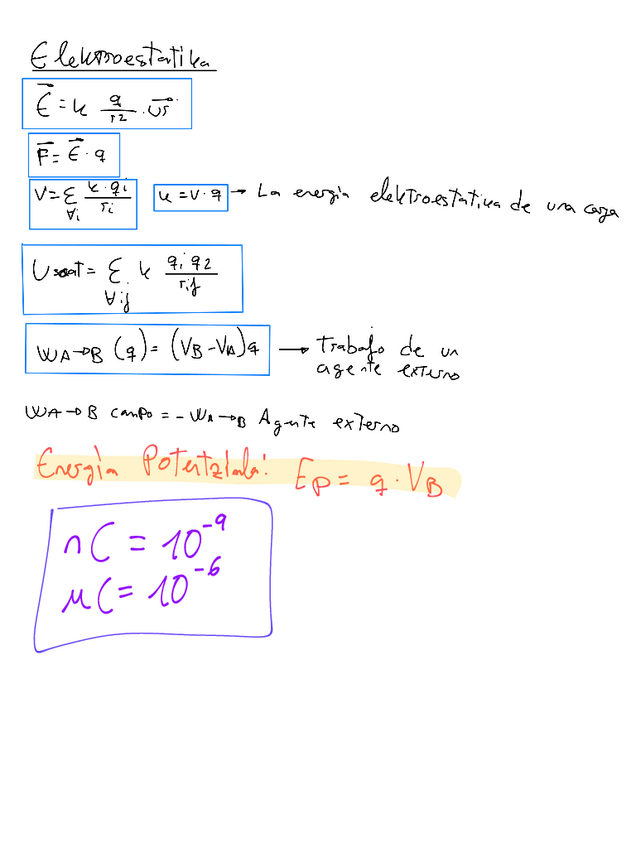 Elektroestatika
E⃗ = k q/r2 · u⃗r
F⃗ = E⃗ · q
V = Σ∀i k·qi/ri   u = V·q → La energía elektroestatika de una carga
U = Σ∀ij k qi q2/rij
WA→B (q) = (VB - VA)q → Trabajo de un
agente externo
WA→B campo = - WA→B Agente externo
Energía Potentziala: Ep = q · VB
nC = 10⁻⁹
μC = 10⁻⁶